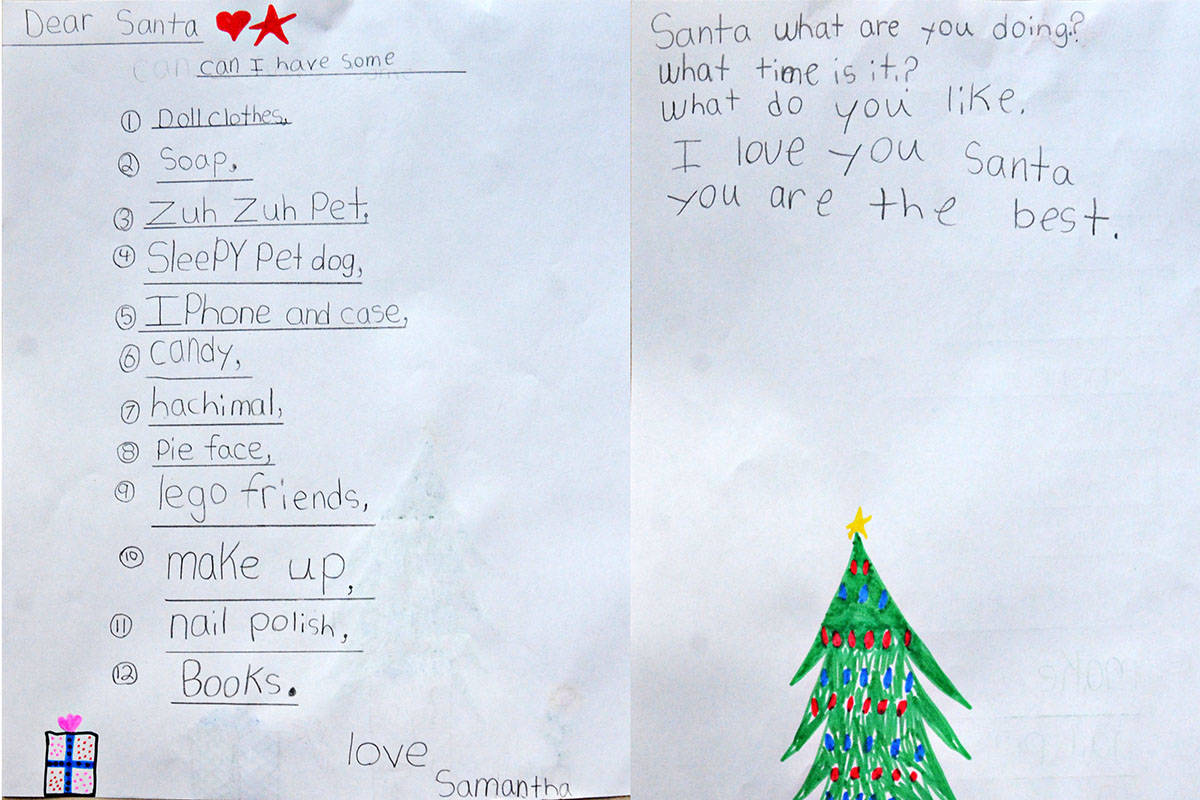 Dear Santa
can I have some
① Doll clothes,
② Soap,
③ Zuh Zuh Pet,
④ SleePY Pet dog,
⑤ IPhone and case,
⑥ candy,
⑦ hachimal,
⑧ Pie face,
⑨ lego friends,
⑩ make up,
⑪ nail polish,
⑫ Books.
love
Samantha
Santa what are you doing?
what time is it?
what do you like.
I love you Santa
you are the best.